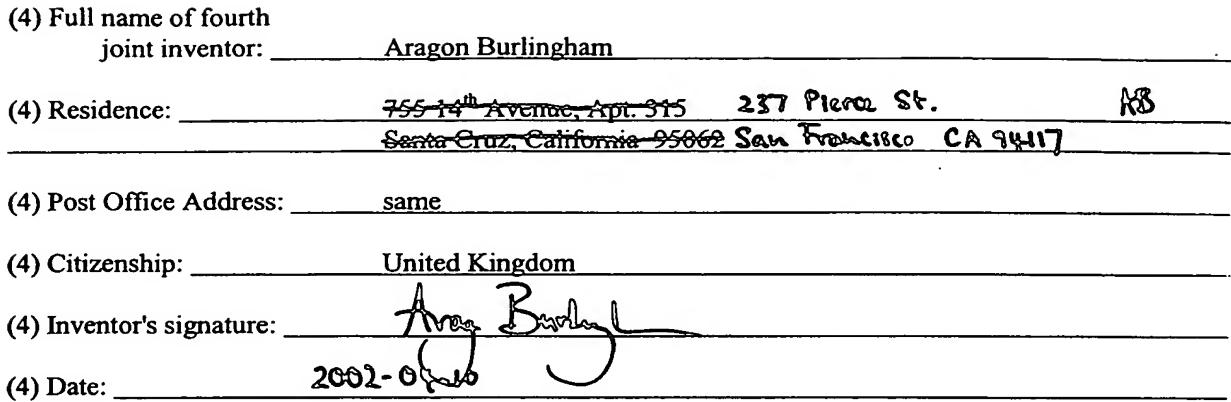 (4) Full name of fourth
joint inventor: Aragon Burlingham
(4) Residence: 755 14th Avenue, Apt. 315 237 Pierce St. AB
Santa Cruz, California 95062 San Francisco CA 94117
(4) Post Office Address: same
(4) Citizenship: United Kingdom
(4) Inventor's signature:
(4) Date: